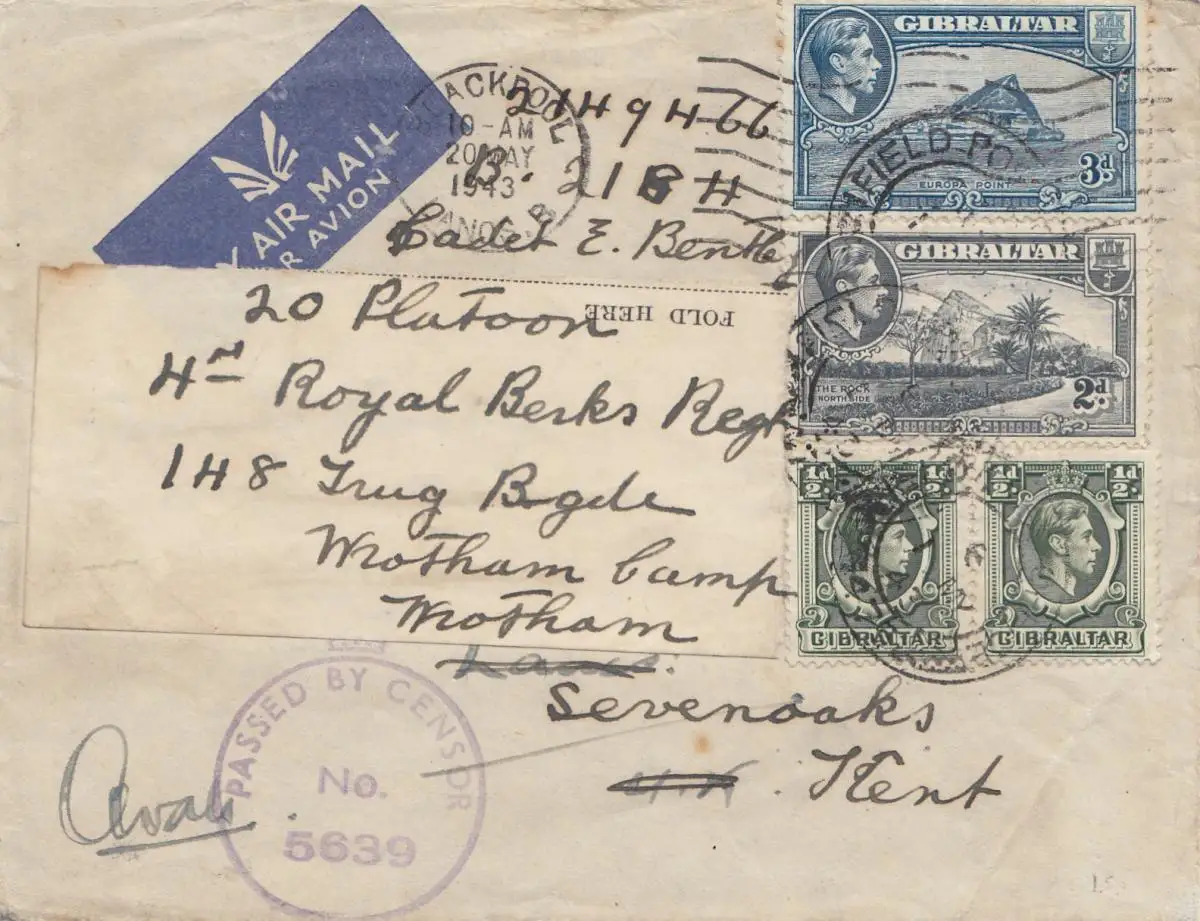 AIR MAIL
AVION
BLACKPOOL
10-AM
20 MAY
1943
LANCS.
2149466
GIBRALTAR
EUROPA POINT
3d
FIELD PO
Cadet E.
FOLD HERE
20 Platoon
4th Royal Berks Regt
148 Bgde
Wrotham Camp
Wrotham
Sevenoaks
Kent
GIBRALTAR
THE ROCK
NORTH SIDE
2d
½d ½d
GIBRALTAR
½d ½d
GIBRALTAR
PASSED BY CENSOR
No.
5639